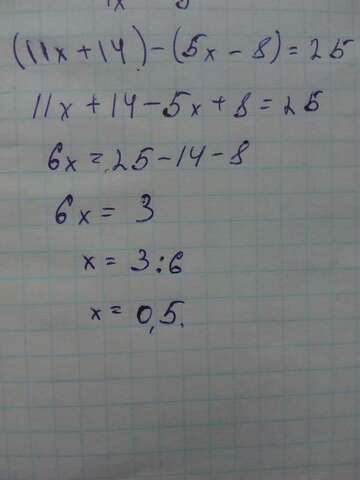 (11x+14)-(5x-8)=25
11x+14-5x+8=25
6x=25-14-8
6x=3
x=3:6
x=0,5.